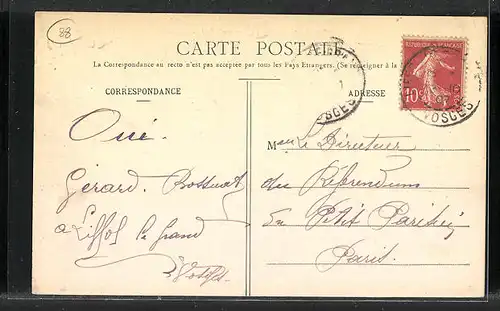 88
CARTE POSTALE
La Correspondance au recto n'est pas acceptée par tous les Pays Etrangers. (Se renseigner à la
CORRESPONDANCE
ADRESSE
REPUBLIQUE FRANÇAISE
10c
VOSGES
VOSGES
Oui.
Gérard. Bossuat
à Liffol le Grand
Vosges
M le Directeur
du Référendum
du Petit Parisien
Paris.